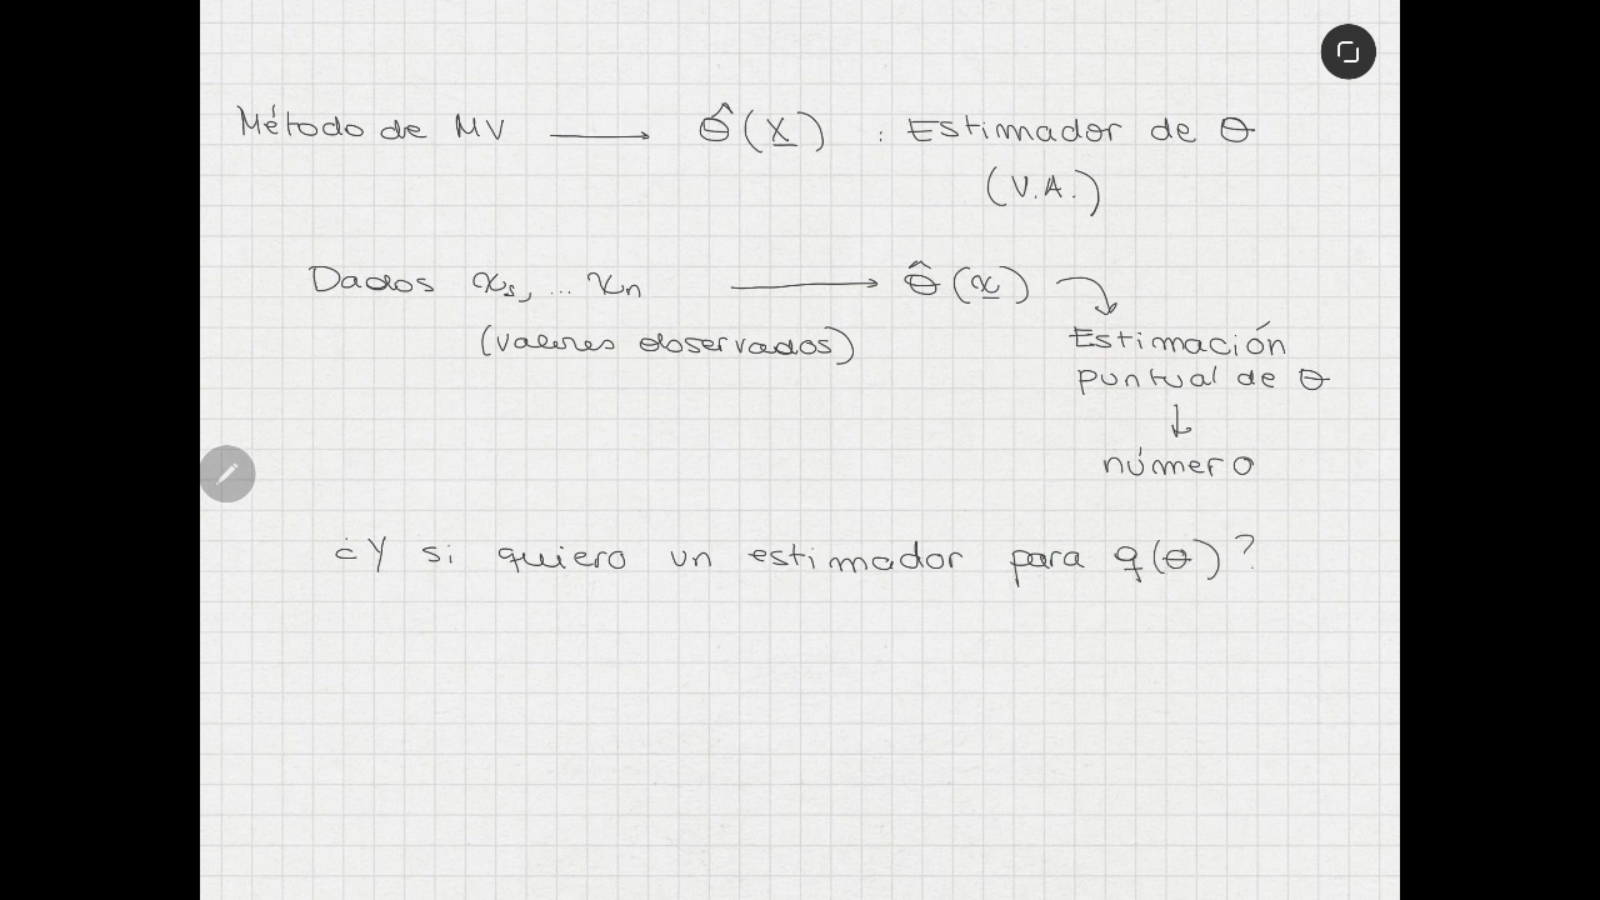 Método de MV ⟶ θ̂(X) : Estimador de θ
(V.A.)
Dados x₁, ... xₙ ⟶ θ̂(x)
(valores observados)
Estimación
puntual de θ
↓
número
¿Y si quiero un estimador para q(θ)?